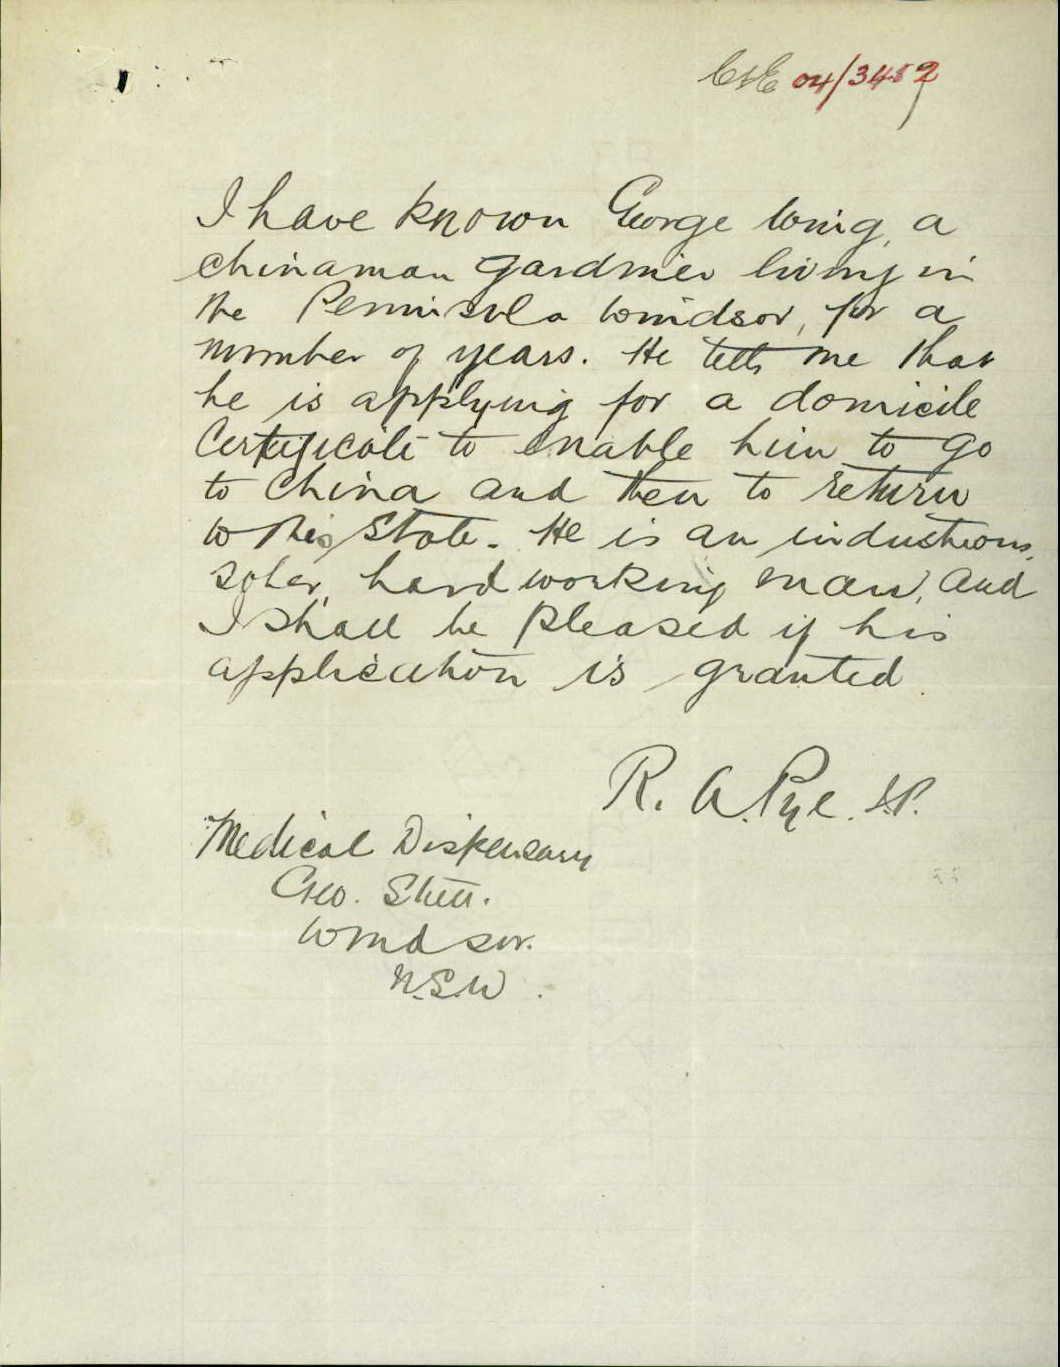 C&E 04/3452
I have known George Wing, a
chinaman gardnier living in
the Penninsula Windsor, for a
number of years. He tells me that
he is applying for a domicile
Certificate to enable him to go
to China and then to return
to this State. He is an industrious,
sober, hard working man, and
I shall be pleased if his
application is granted.
R. A. Pye. J.P.
Medical Dispensary
Geo. Street.
Windsor.
N.S.W.